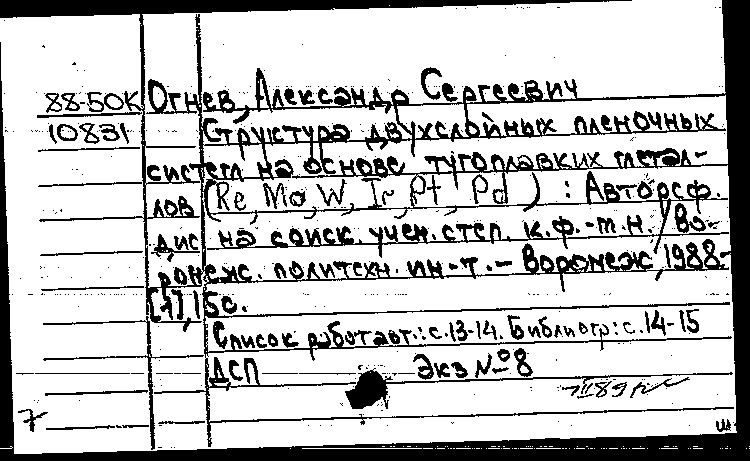 88-50К Огнев, Александр Сергеевич
10831 Структура двухслойных пленочных
систем на основе тугоплавких метал-
лов (Re, Mo, W, Ir, Pt, Pd) : Автореф.
дис на соиск. учен. степ. к.ф.-т.н. / Во-
ронеж. политехн. ин-т. - Воронеж, 1988.-
[1], 15с.
Список работ авт.: с.13-14. Библиогр: с.14-15
ДСП Экз № 8
7